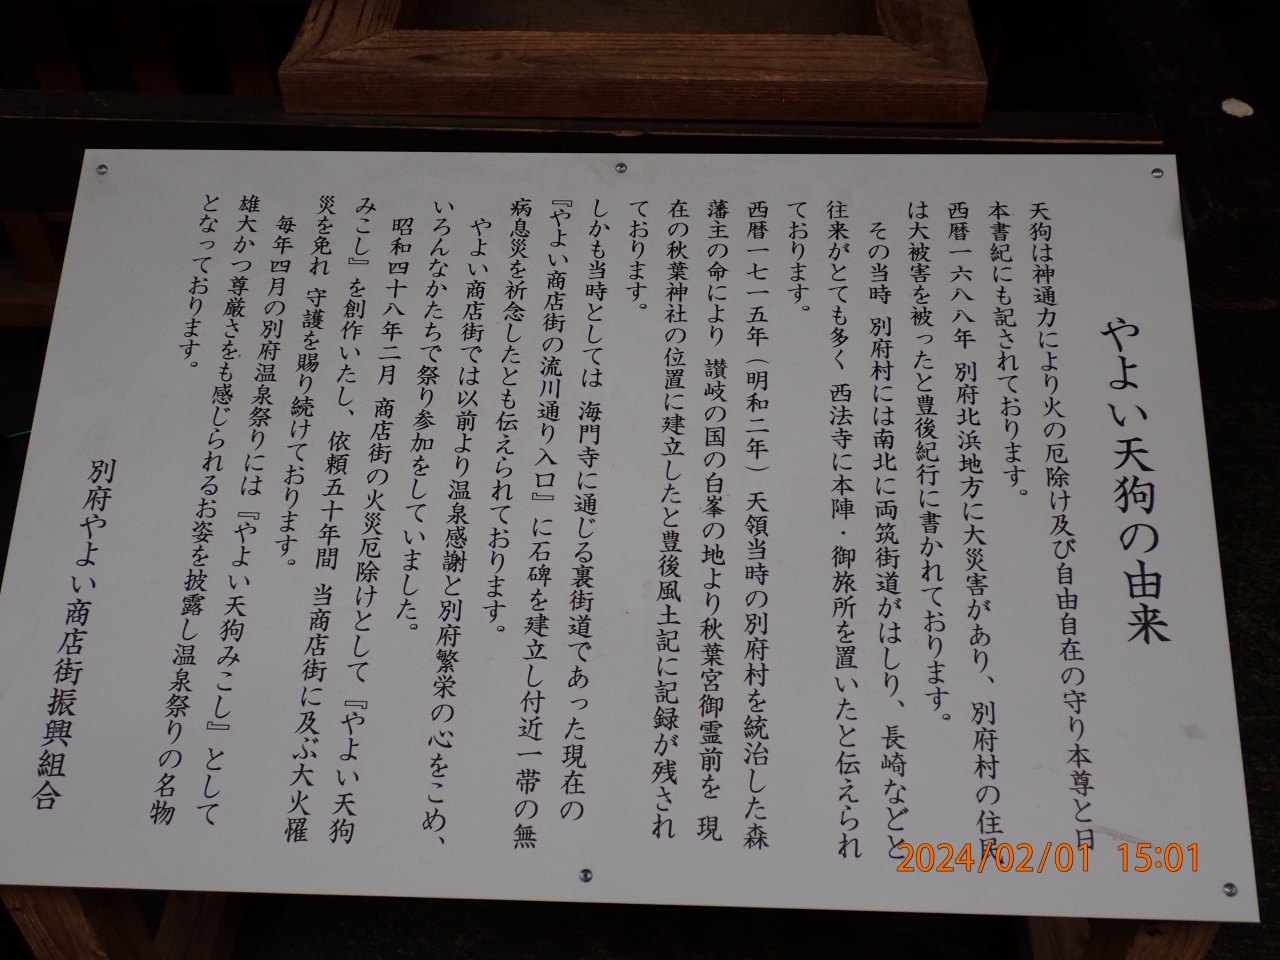 やよい天狗の由来
天狗は神通力により火の厄除け及び自由自在の守り本尊と日
本書紀にも記されております。
西暦一六八八年 別府北浜地方に大災害があり、別府村の住民
は大被害を被ったと豊後紀行に書かれております。
その当時 別府村には南北に両筑街道がはしり、長崎などと
往来がとても多く 西法寺に本陣・御旅所を置いたと伝えられ
ております。
西暦一七一五年（明和二年）天領当時の別府村を統治した森
藩主の命により 讃岐の国の白峯の地より秋葉宮御霊前を 現
在の秋葉神社の位置に建立したと豊後風土記に記録が残され
ております。
しかも当時としては 海門寺に通じる裏街道であった現在の
『やよい商店街の流川通り入口』に石碑を建立し付近一帯の無
病息災を祈念したとも伝えられております。
やよい商店街では以前より温泉感謝と別府繁栄の心をこめ、
いろんなかたちで祭り参加をしていました。
昭和四十八年二月 商店街の火災厄除けとして『やよい天狗
みこし』を創作いたし、依頼五十年間 当商店街に及ぶ大火罹
災を免れ 守護を賜り続けております。
毎年四月の別府温泉祭りには『やよい天狗みこし』として
雄大かつ尊厳さをも感じられるお姿を披露し温泉祭りの名物
となっております。
別府やよい商店街振興組合
2024/02/01 15:01